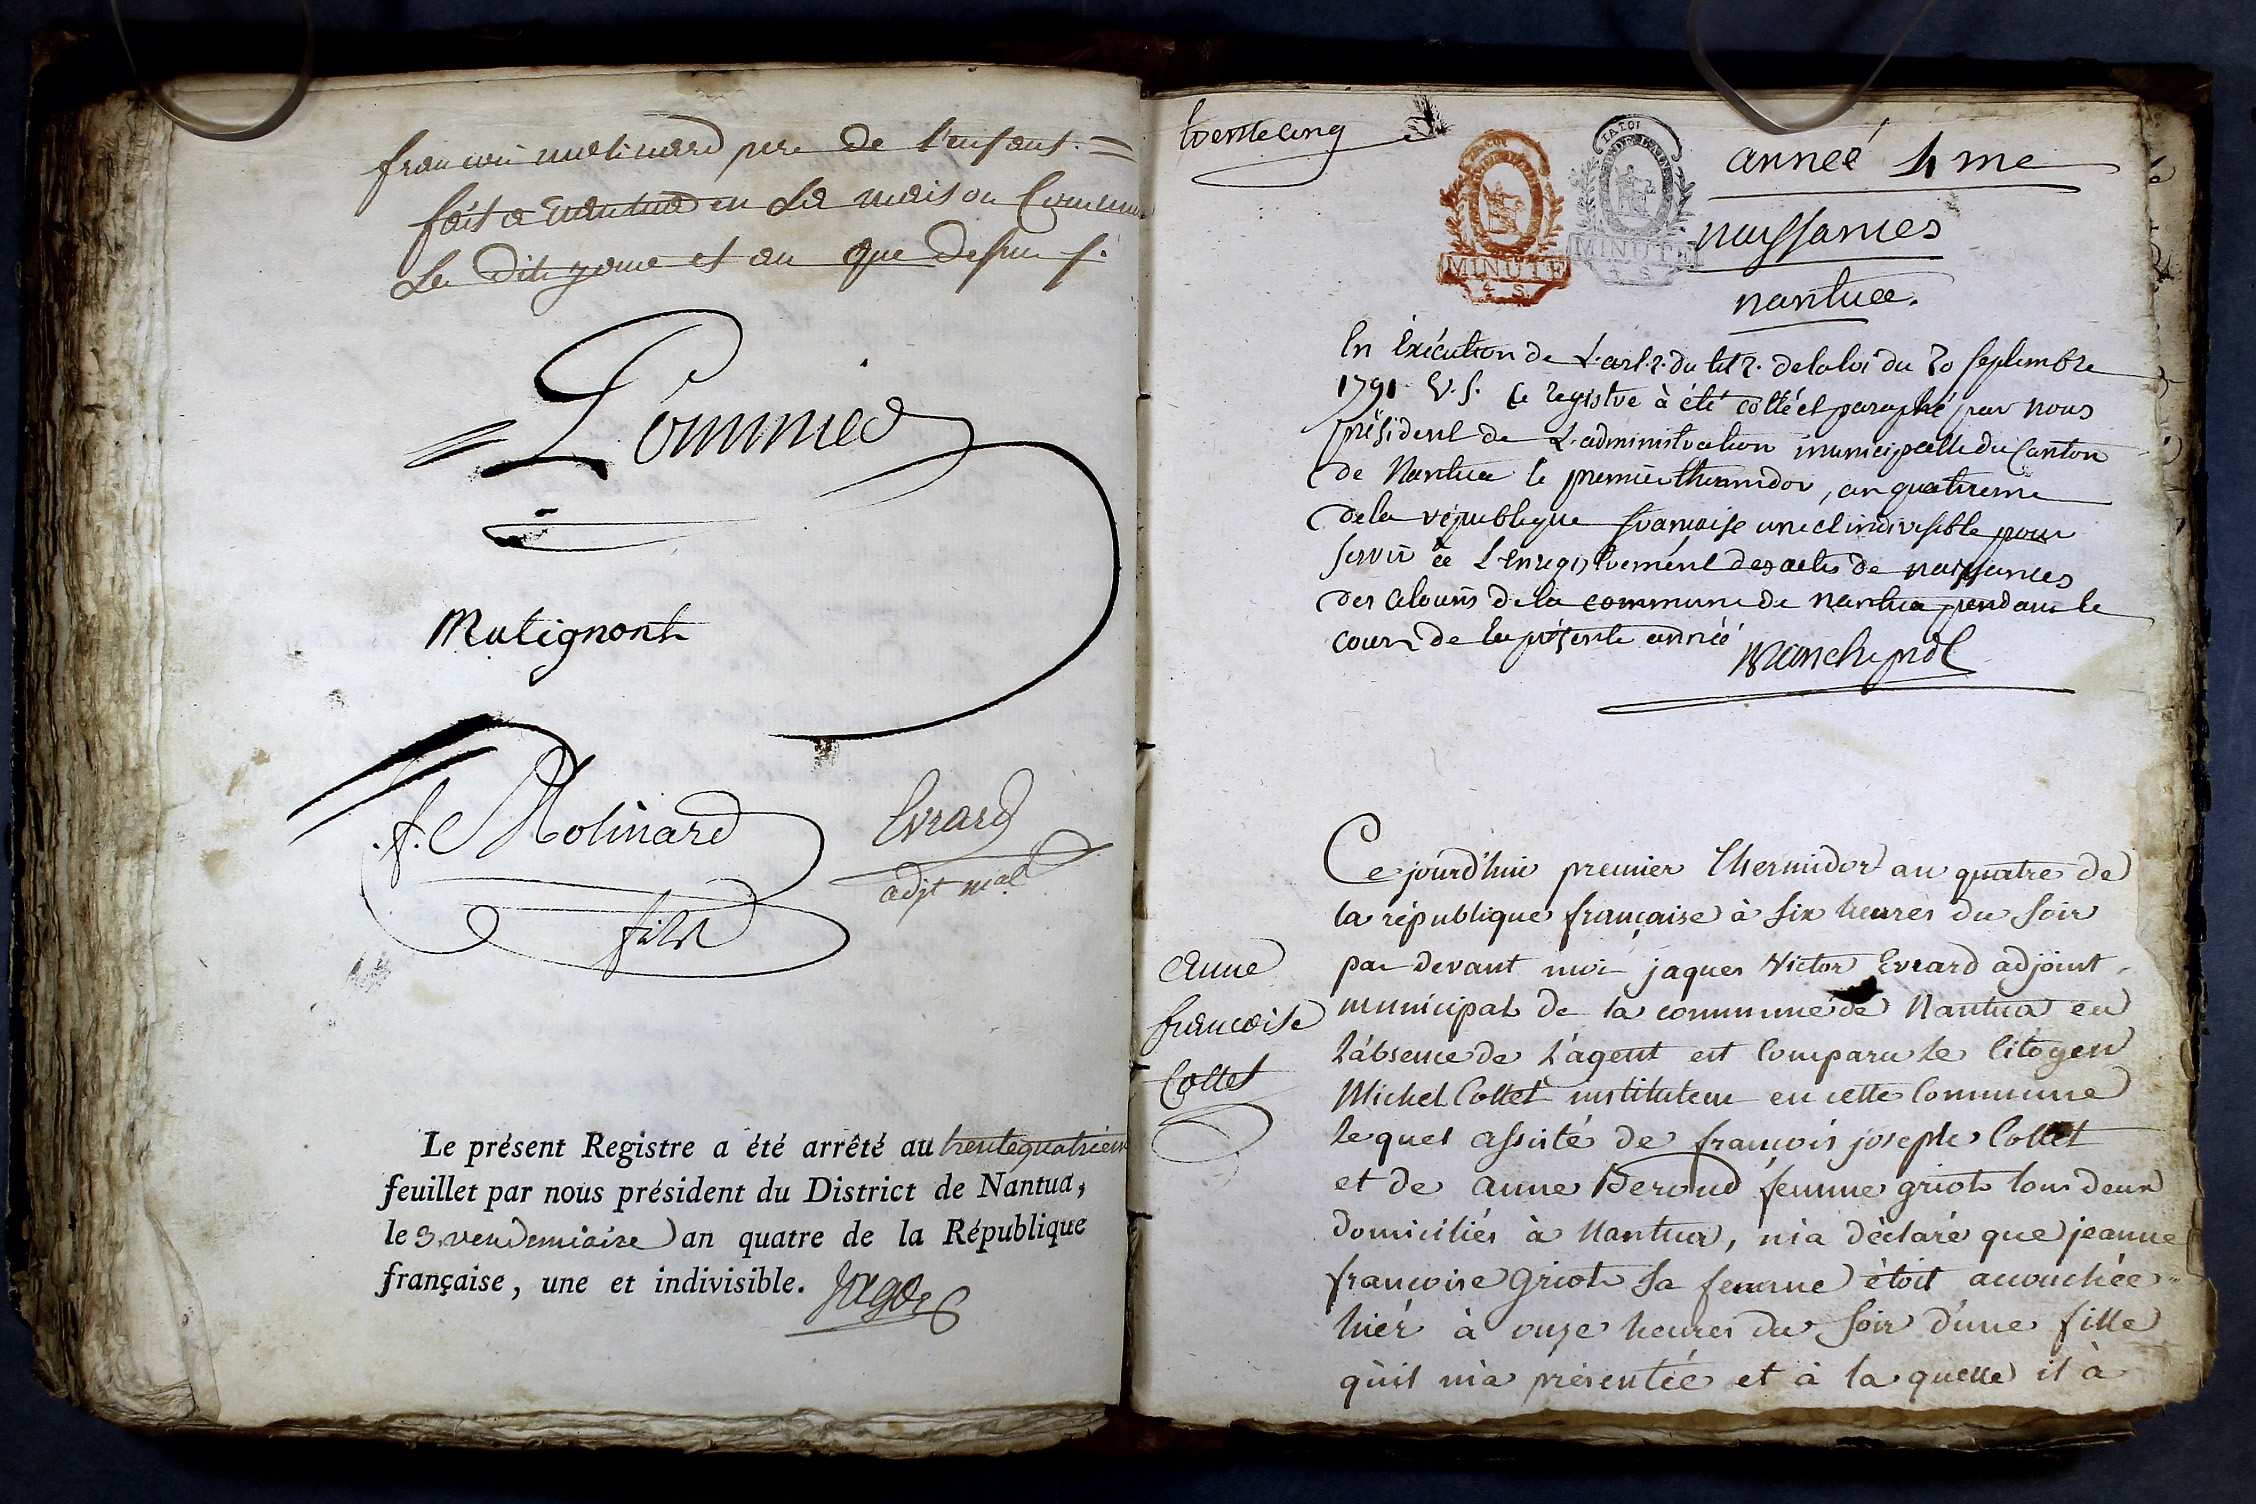 francois molinard pere de l'enfant =
fait a nantua en la maison Commune
le dit jour et an que dessus /.
Pommier
Matignont
f. Molinard
fils
Evrard
adjt mal
Le présent Registre a été arrêté au trentequatriem
feuillet par nous président du District de Nantua,
le 3 vendemiaire an quatre de la République
française, une et indivisible.
trentecinq
LA LOI
MINUTE
4 S
LA LOI
MINUTE
4 S
anneé 4me
naissances
nantua.
En Exécution de L'art. 2. du tit 2. de la loi du 20 septembre
1791 V. S. Ce registre à été cotté et paraphé par nous
président de L'administration municipalle du Canton
de Nantua le premier thermidor, an quatrieme
de la république francaise une et indivisible pour
servir a L'enregistrement des actes de naissances
des citoiens de la commune de nantua pendant le
cours de la présente anneé
Ce jourd'hui premier Thermidor an quatre de
la république française à six heures du soir
par devant moi jaques Victor Evrard adjoint
municipal de la commune de Nantua en
l'absence de l'agent est Comparu le Citoyen
Michel Collet instituteur en cette Commune
lequel assisté de francois joseph Collet
et de anne Beroud femme griot tous deux
domiciliés à Nantua, m'a déclaré que jeanne
francoise Griot sa femme étoit accouchée
hiér à onze heures du soir d'une fille
qu'il m'a présentée et à la quelle il à
anne
francoise
Collet